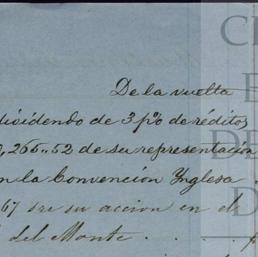 De la vuelta
dividendo de 3 p% de réditos
266..52 de su representacion
la Convencion Ynglesa
67 su accion en el
del Monte